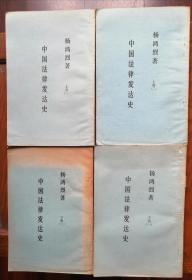 杨鸿烈著
中国法律发达史
上册
杨鸿烈著
中国法律发达史
杨鸿烈著
中国法律发达史
杨鸿烈著
中国法律发达史